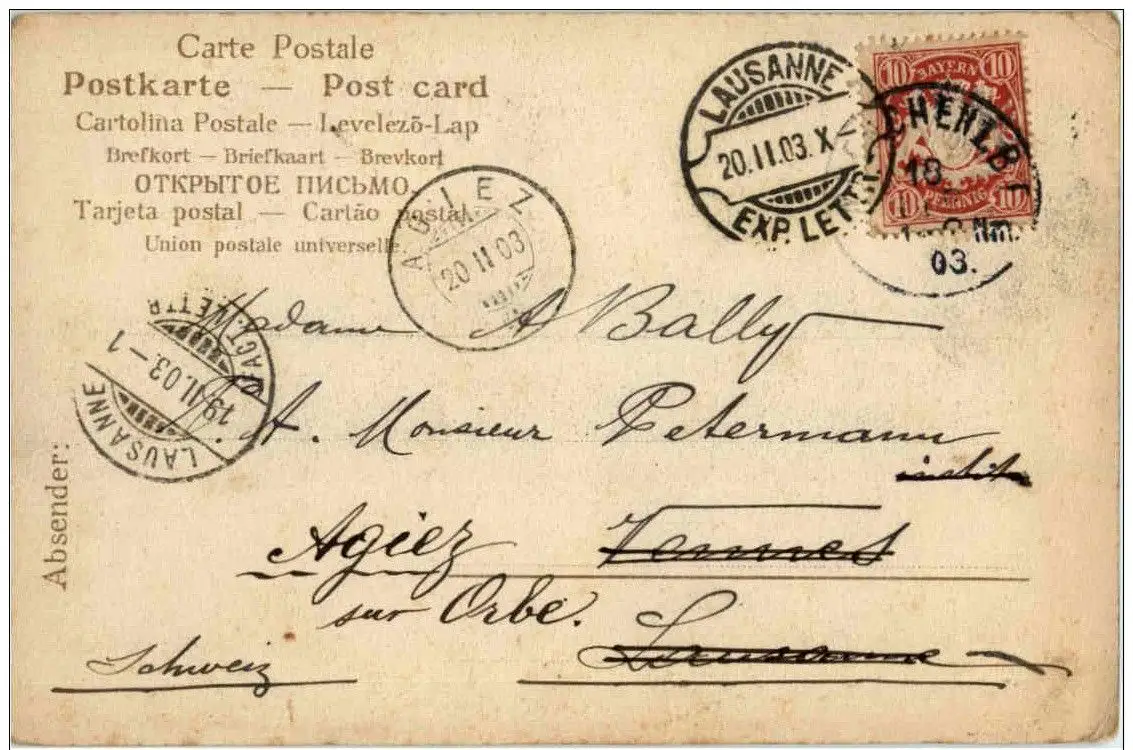 Carte Postale
Postkarte — Post card
Cartolina Postale — Levelezõ-Lap
Brefkort — Briefkaart — Brevkort
ОТКРЫТОЕ ПИСЬМО.
Tarjeta postal — Cartão postal.
Union postale universelle.
LAUSANNE
20.II.03.X
EXP. LETTR.
10 BAYERN 10
10 PFENNIG 10
18
Nm.
03.
AGIEZ
20 II 03
LAUSANNE
19.II.03.-1
LETTR
Madame A Bally
A. Monsieur Petermann
instit
Agiez Vennes
sur Orbe. Lausanne
Schweiz
Absender: